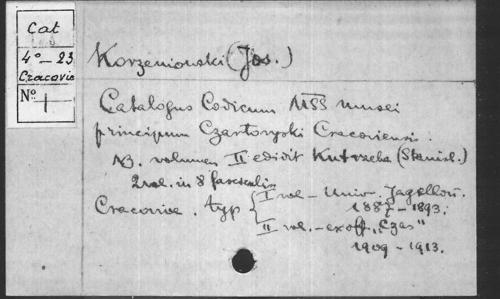 Cat
4° — 23
Cracovia
N° 1
Korzeniowski (Jos.)
Catalogus Codicum MSS musei
principum Czartoryski Cracoviensis.
NB. volumen II edidit Kutrzeba (Stanisl.)
2 vol. in 8 fasciculis
Cracoviae. typ { I vol – Univ. Jagellon.
1887 – 1893.
II vol. – ex off. „Czas"
1909 – 1913.